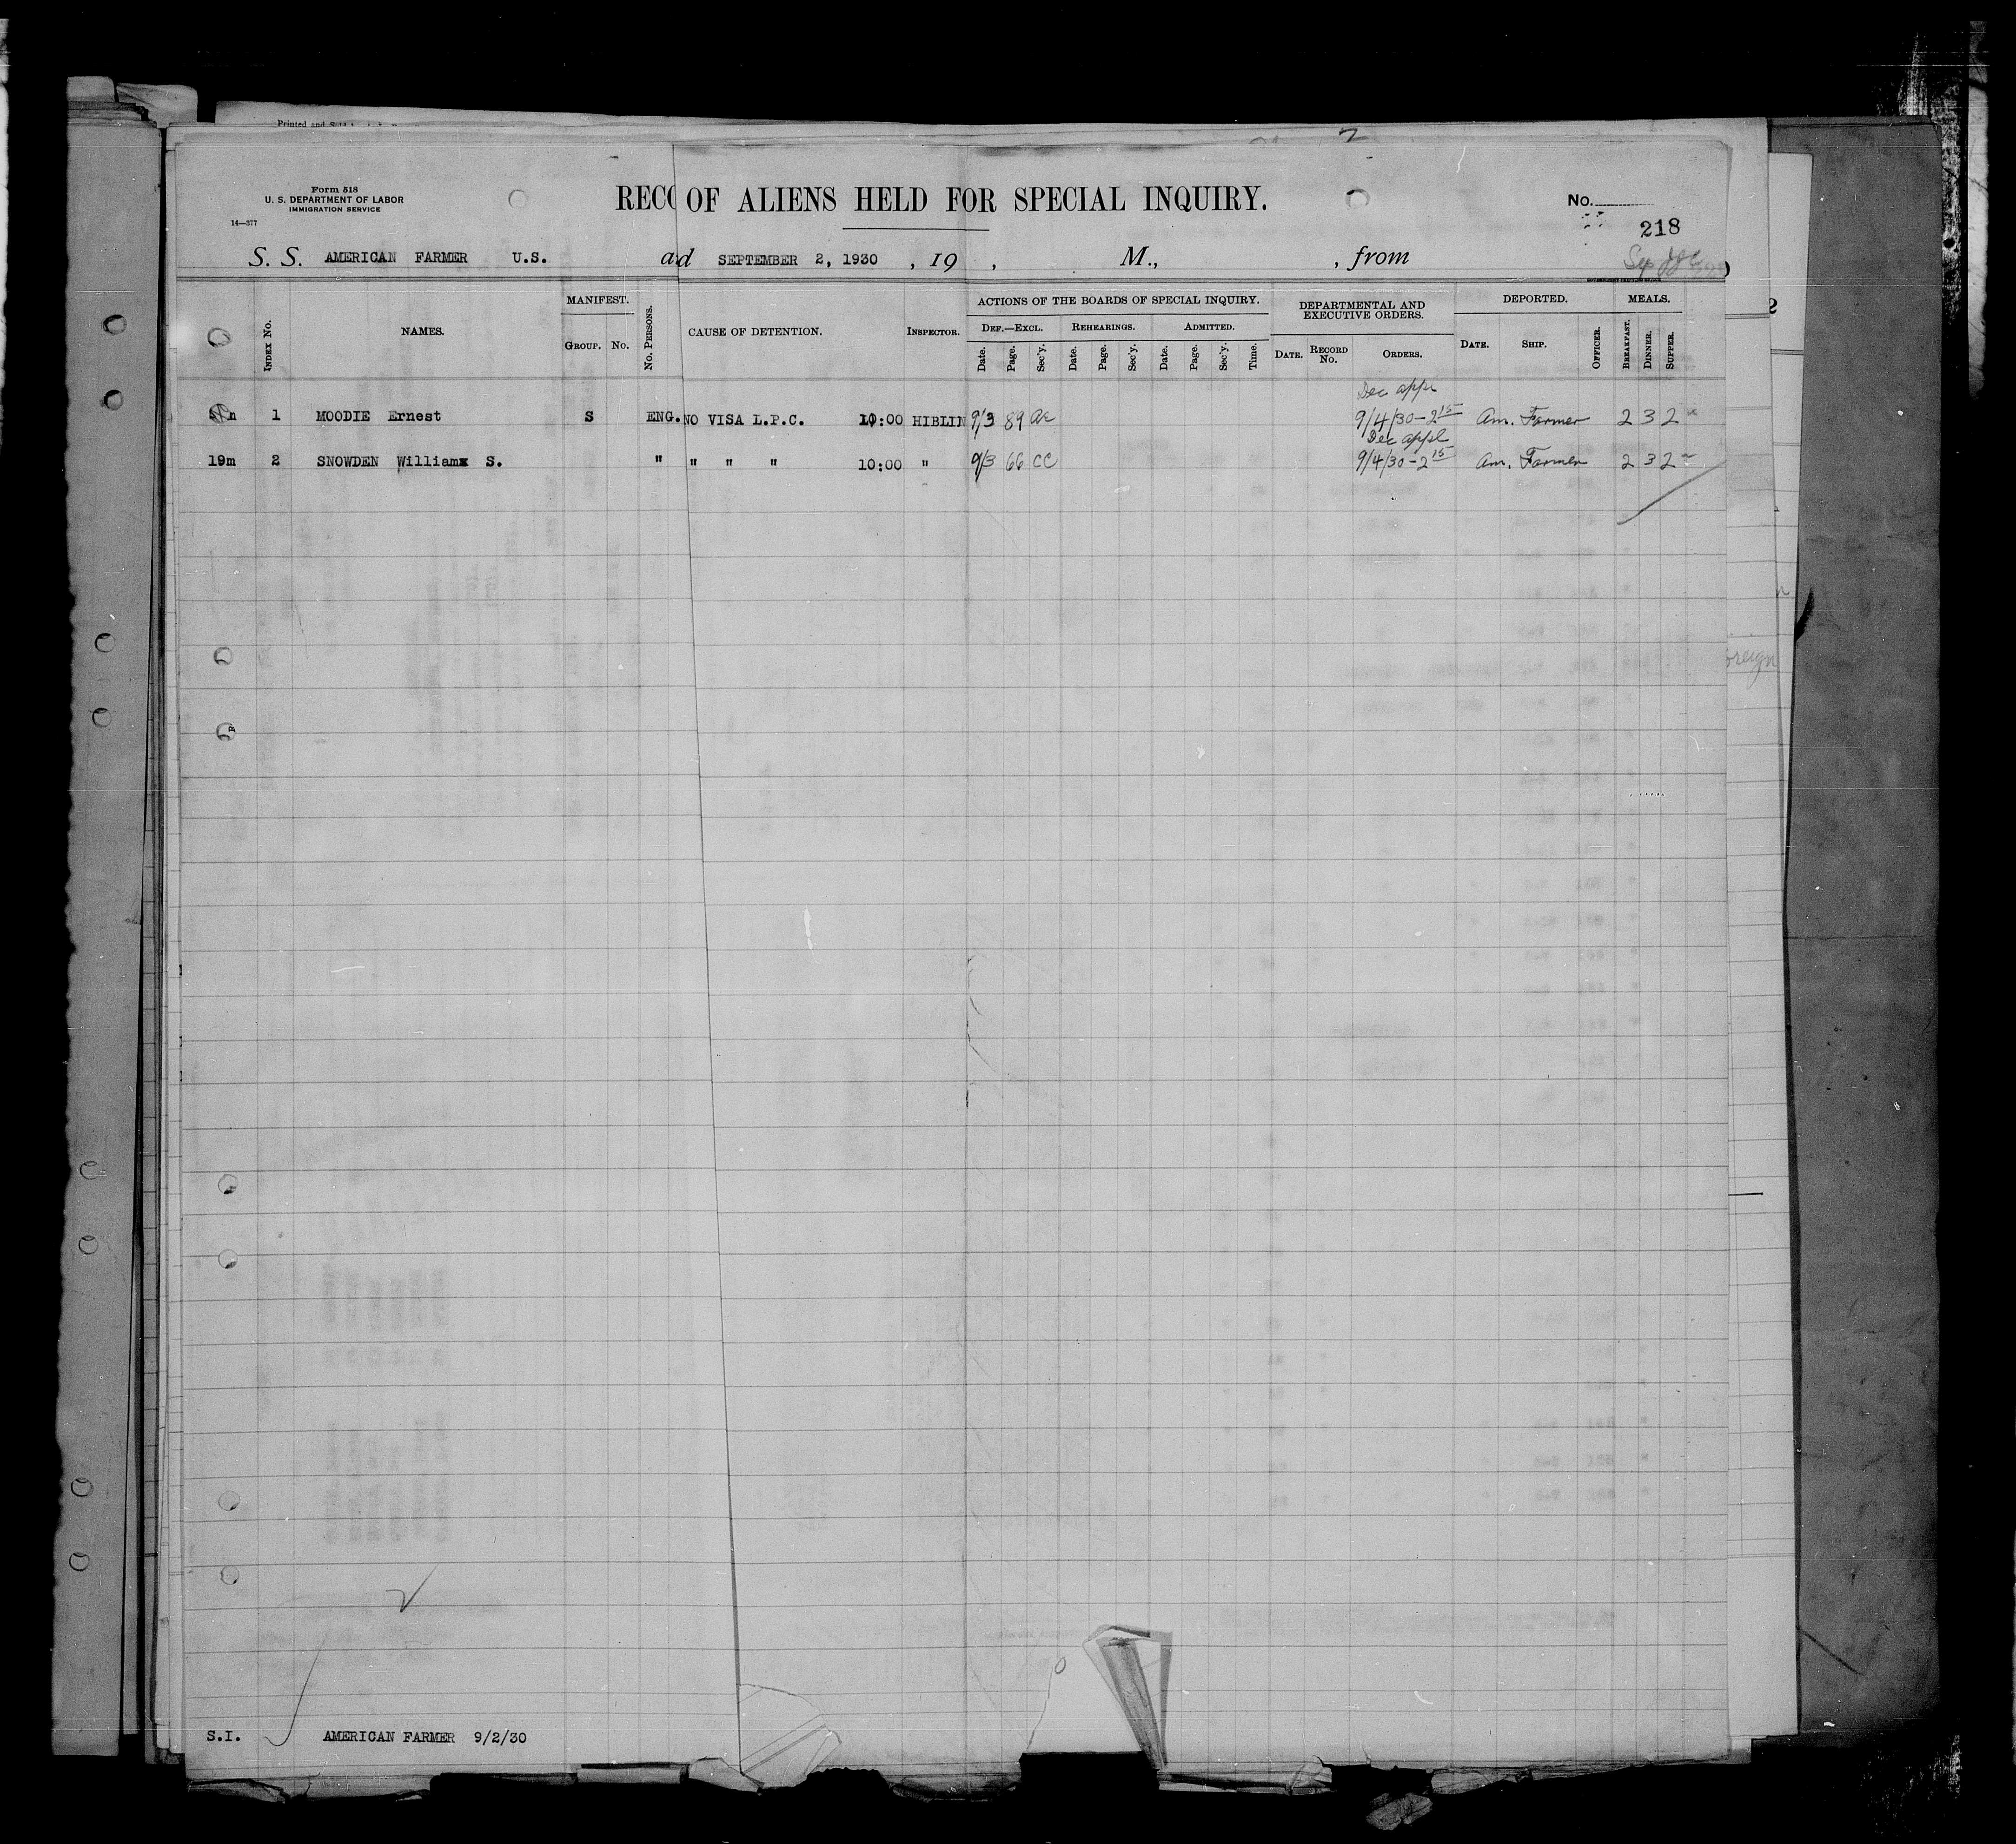 Printed and
Form 518
U. S. DEPARTMENT OF LABOR
IMMIGRATION SERVICE
14—377
RECO OF ALIENS HELD FOR SPECIAL INQUIRY.
No.
218
S. S. AMERICAN FARMER U.S. a d SEPTEMBER 2, 1930 , 19 , M., , from
INDEX NO. NAMES. MANIFEST. GROUP. NO. NO. PERSONS. CAUSE OF DETENTION. INSPECTOR. ACTIONS OF THE BOARDS OF SPECIAL INQUIRY. DEF.—EXCL. Date. Page. Sec'y. REHEARINGS. Date. Page. Sec'y. ADMITTED. Date. Page. Sec'y. Time. DEPARTMENTAL AND EXECUTIVE ORDERS. DATE. RECORD NO. ORDERS. DEPORTED. DATE. SHIP. OFFICER. MEALS. BREAKFAST. DINNER. SUPPER.
Dec appl
1 MOODIE Ernest S ENG. NO VISA L.P.C. 10:00 HIBLIN 9/3 89 ac 9/4/30-2 15 Am. Farmer 2 3 2
Dec appl
19m 2 SNOWDEN Williamx S. " " " " 10:00 " 9/3 66 CC 9/4/30-2 15 Am. Farmer 2 3 2
oreign
S.I. AMERICAN FARMER 9/2/30